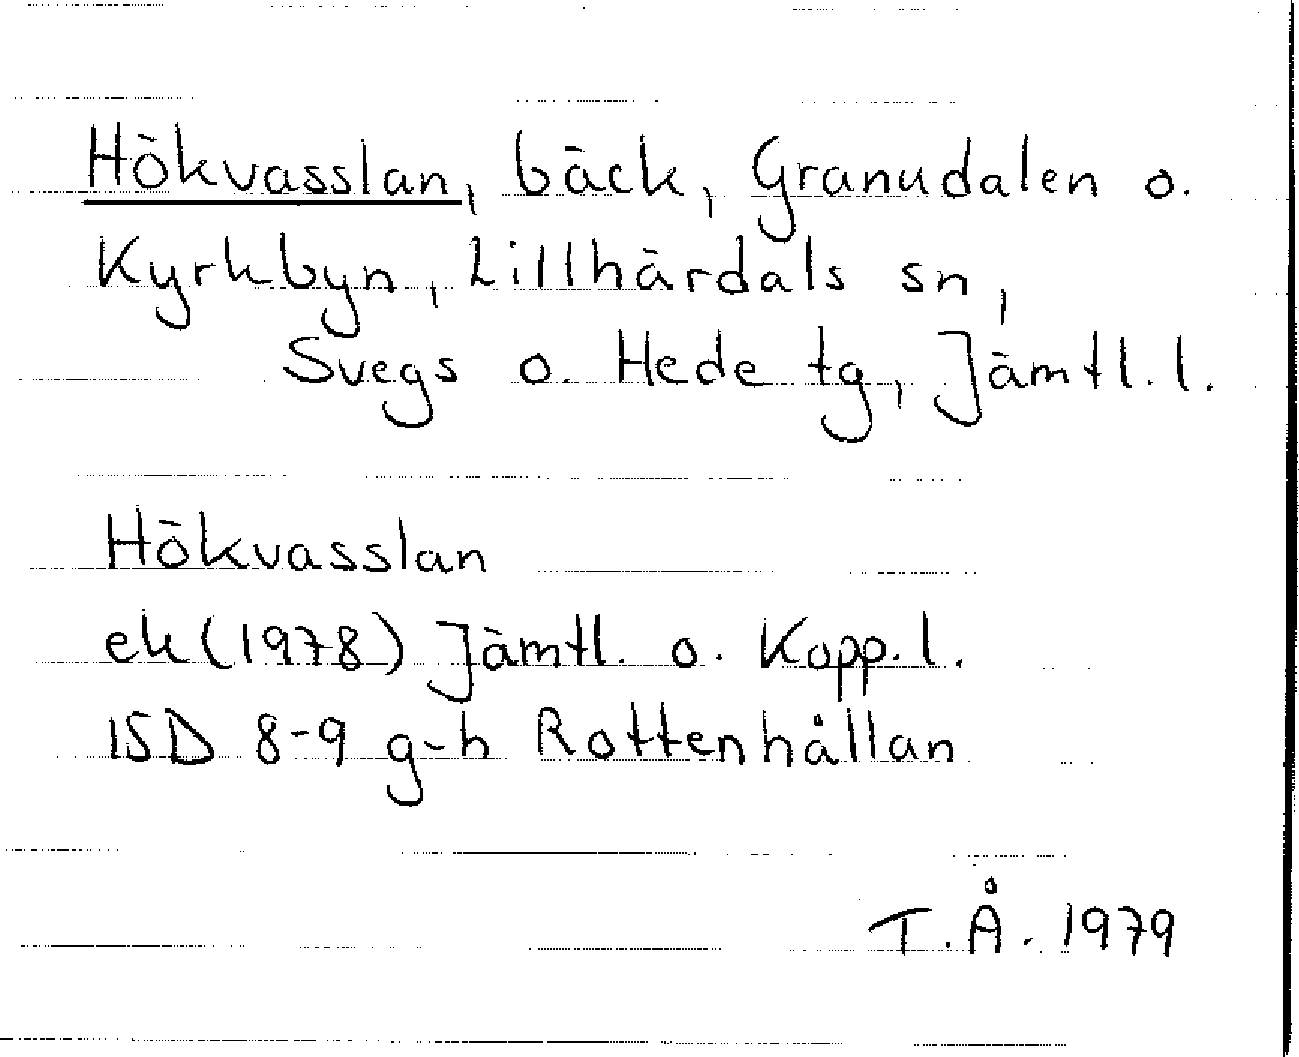 Hökvasslan, bäck, Granudalen o.
Kyrkbyn, Lillhärdals sn,
Svegs o. Hede tg, Jämtl. l.
Hökvasslan
ek (1978) Jämtl. o. Kopp. l.
15D 8-9 g-h Rottenhållan
T. Å. 1979